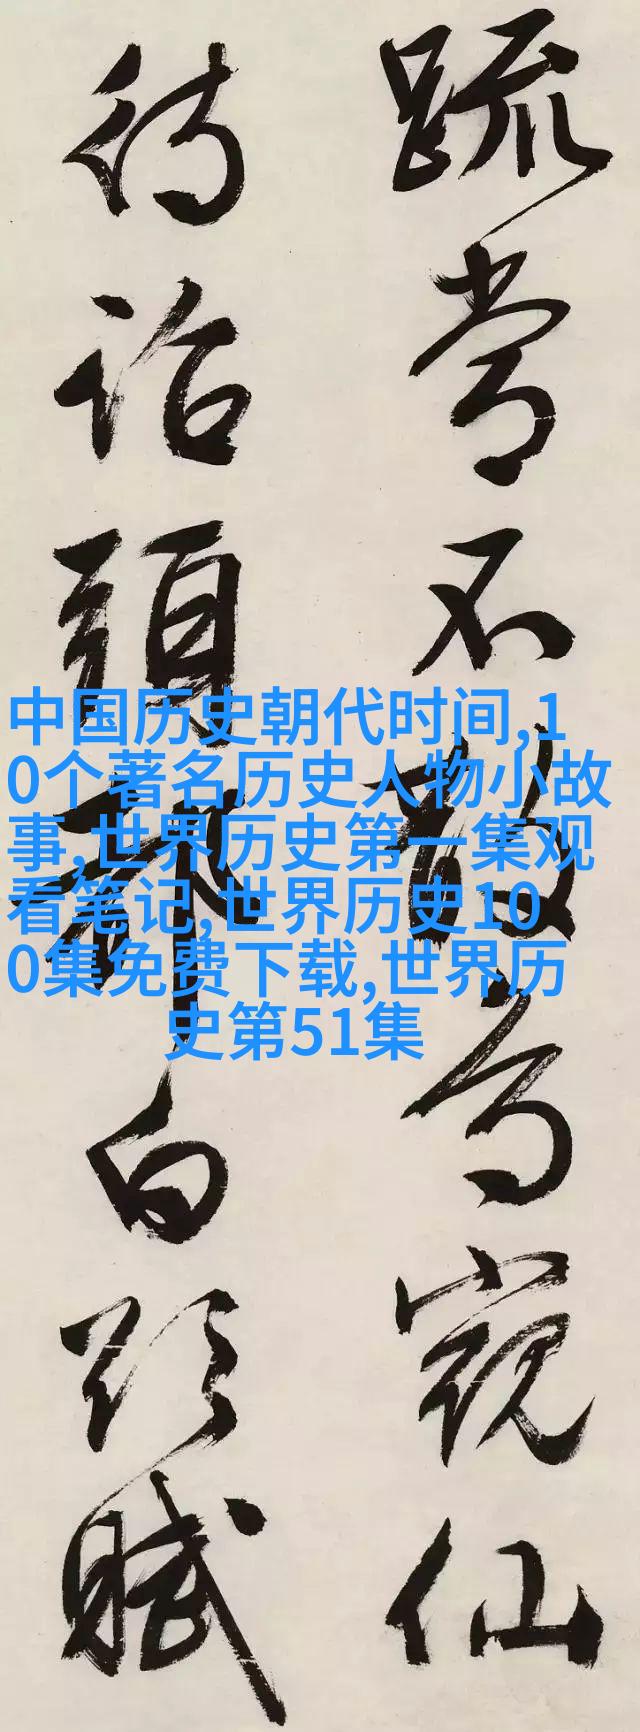 不散為窺仙
待詔頭白賦
中国历史朝代时间,1
0个著名历史人物小故
事,世界历史第一集观
看笔记,世界历史10
0集免费下载,世界历
史第51集